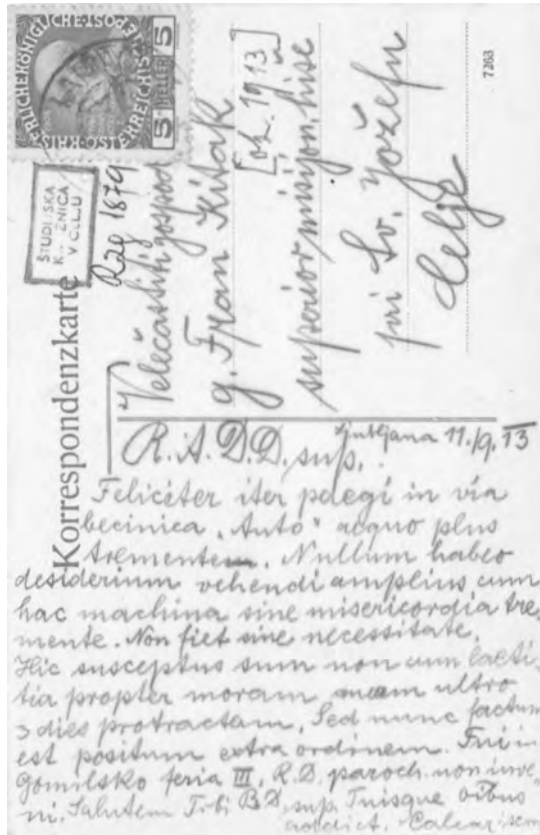 KAISERLICHE KÖNIGLICHE ÖSTERREICHISCHE POST
5 HELLER 5
ŠTUDIJSKA
KNJIŽNICA
V CELJU
Razg 1879
Korrespondenzkarte
Velečastiti gospod
g. Fran Kitak
[ok. 1913]
superior misijon. hiše
pri Sv. Jožefu
Celje
7263
Ljubljana 11./9. 13
R. A. D. D. sup.
Feliciter iter pelegi in via
"Auto" aequo plus
tremente. Nullum habeo
desiderium vehendi amplius cum
hac machina sine misericordia tre,
mente. Non fiet sine necessitate.
Hic susceptus sum non cum laeti,
tia propter moram meam ultro
3 dies protractam, Sed nunc factum
est positum extra ordinem. Fui in
Gomilsko feria III, R. D. paroch. non inve,
ni. Salutem Tibi B.D. sup. Tuisque
addict.